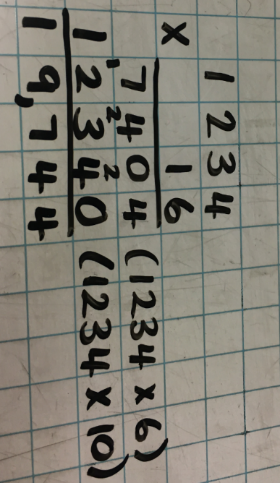 1 2 3 4
× 1 6
7 4 0 4 (1234 × 6)
1 2 3 4 0 (1234 × 10)
1 9,7 4 4